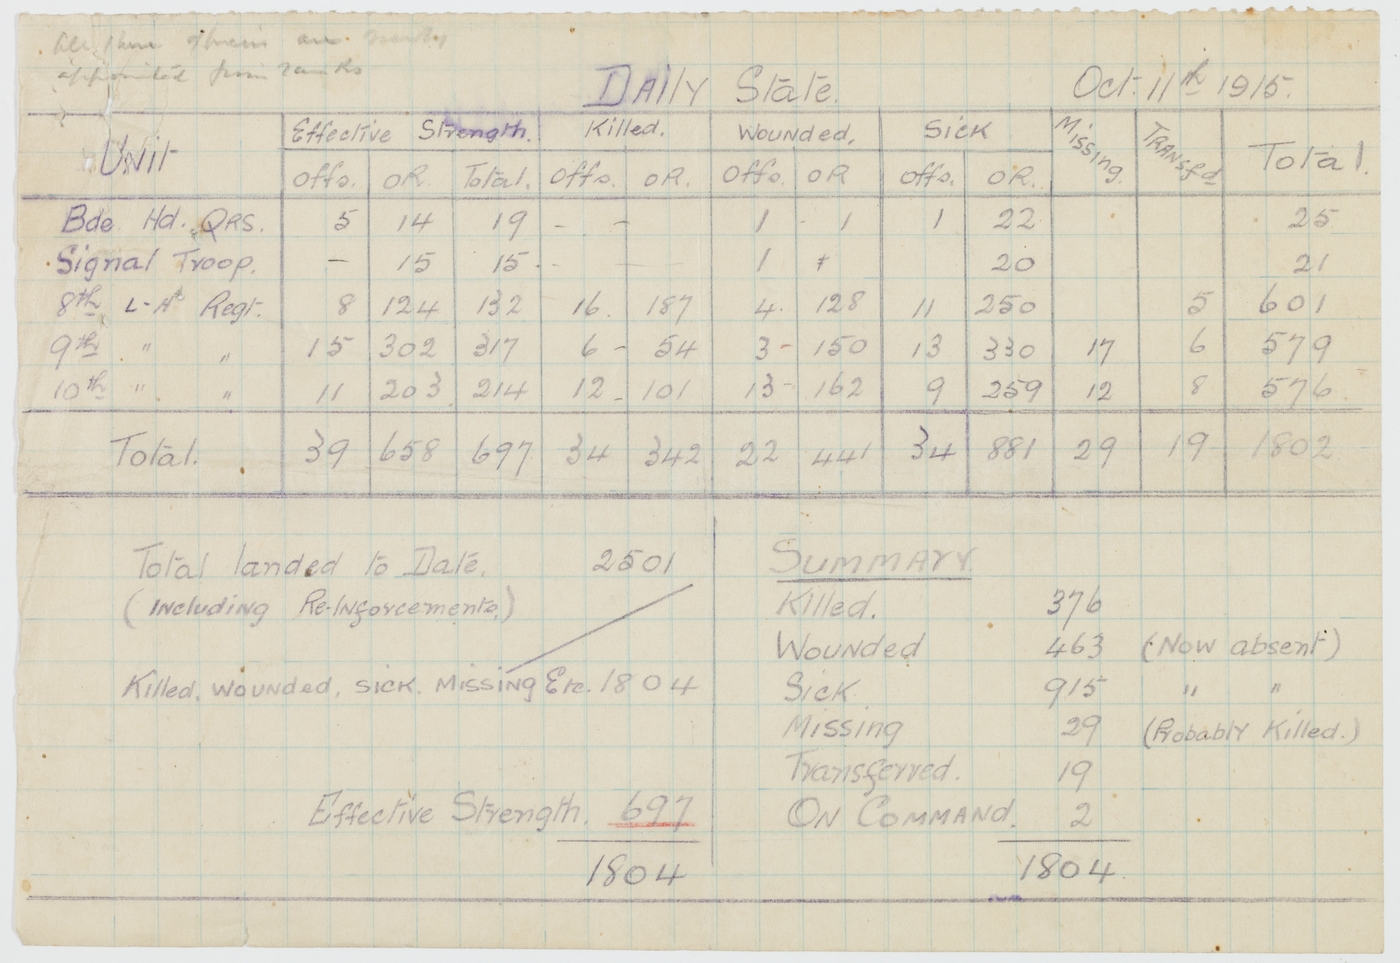 appointed from ranks
Daily State. Oct. 11th 1915.
Unit Effective Strength. Killed. Wounded, Sick Missing. Transfd Total.
Offs. OR. Total. Offs. OR. Offs. OR Offs. OR.
Bde Hd. QRS. 5 14 19 - - 1 - 1 1 22 25
Signal Troop. - 15 15 - - 1 20 21
8th L-H Regt. 8 124 132 16. 187 4. 128 11 250 5 601
9th " " 15 302 317 6 - 54 3 - 150 13 330 17 6 579
10th " " 11 203 214 12 - 101 13 - 162 9 259 12 8 576
Total. 39 658 697 34 342 22 441 34 881 29 19 1802
Total landed to Date. 2501
(Including Re-Inforcements.)
Killed, Wounded, Sick. Missing Etc. 1804
Effective Strength. 697
1804
Summary
Killed. 376
Wounded 463 (Now absent)
Sick 915 " "
Missing 29 (Probably Killed.)
Transferred. 19
On Command. 2
1804